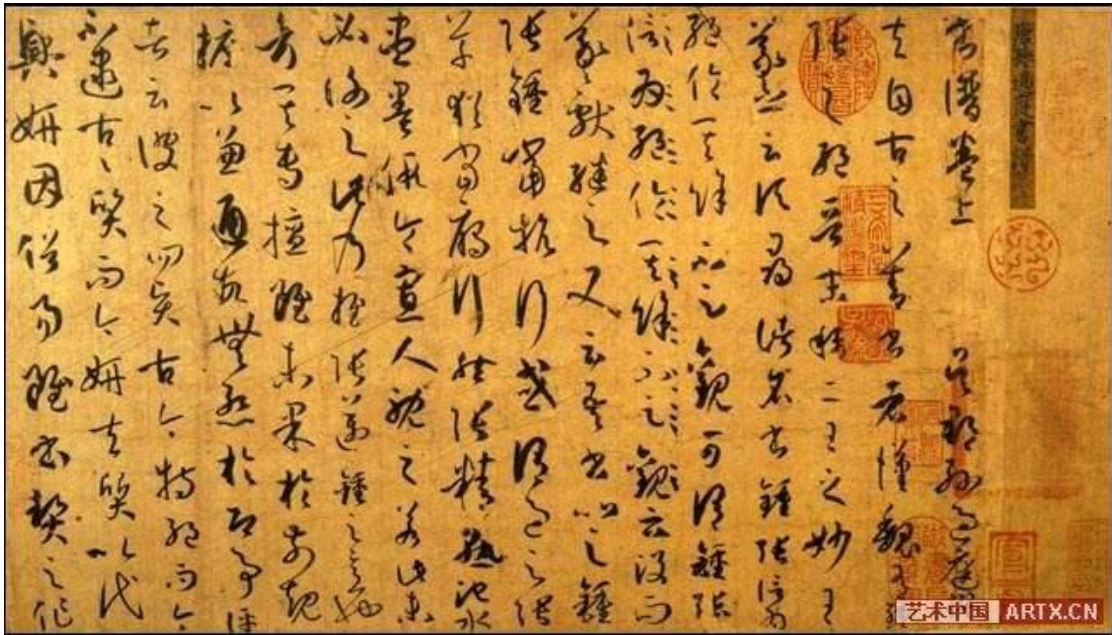 書譜卷上 吳郡孫過庭
夫自古之善書者漢魏有鍾
張之絕晉末稱二王之妙王
羲之云頃尋諸名書鍾張信為
絕倫其餘不足觀可謂鍾張
信為絕倫其餘不足觀云沒而
羲獻繼之又云吾書比之鍾
張鍾當抗行或謂過之張
草猶當雁行然張精熟池水
盡墨假令寡人耽之若此未
必謝之此乃推張邁鍾之意也
考其專擅雖未果於前規
摭以兼通故無慚於即事評
者云彼之四賢古今特絕而今
不逮古〻質而今妍夫質以代
興妍因俗易雖書契之作
艺术中国 ARTX.CN